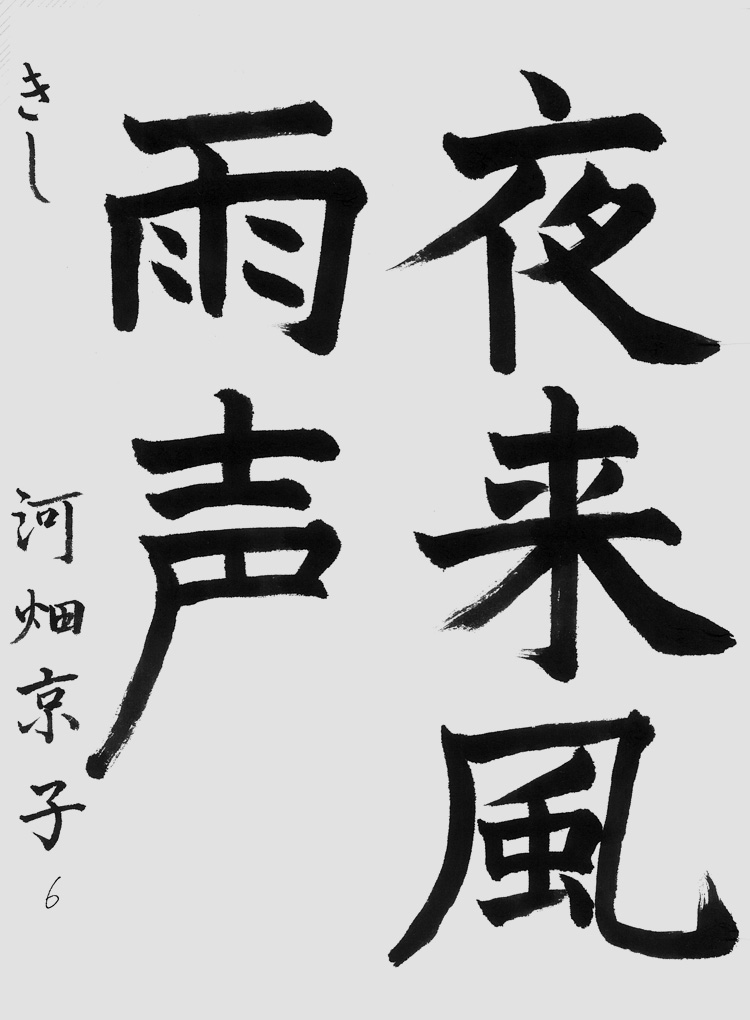 夜来風
雨声
きし
河畑京子
6